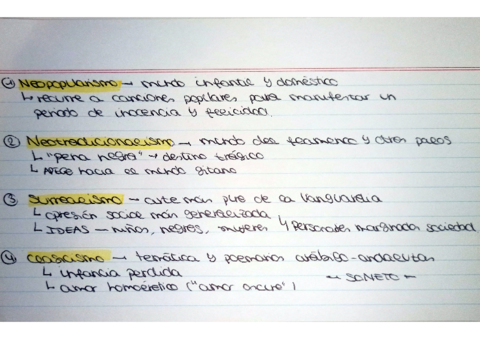 ① Neopopularismo → mundo infantil y doméstico
↳ recurre a canciones populares para manifestar un
periodo de inocencia y felicidad.
② Neotradicionalismo → mundo del flamenco y otros palos
↳ "pena negra" → destino trágico
↳ APEGO hacia el mundo gitano
③ Surrealismo → arte más puro de la Vanguardia
↳ opresión social más generalizada
↳ IDEAS — niños, negros, mujeres ↳ Personajes marginados sociedad
④ Clasicismo → temática y poemarios arábigo-andaluces
↳ infancia perdida ~ SONETO ~
↳ amor homoérotico ("amor oscuro")